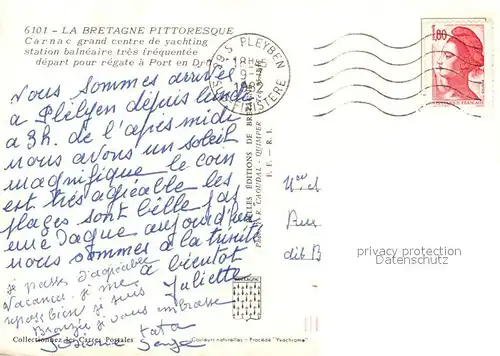 6101 - LA BRETAGNE PITTORESQUE
Carnac grand centre de yachting
station balnéaire très fréquentée
départ pour régate à Port en Dro
nous sommes arrivés
a Pleyben depuis lundi
a 3h. de l'apres midi
nous avons un soleil
magnifique le coin
est très agréable les
plages sont belle pas
une vague aujourd'hui
nous sommes a la trinité
a bientot
Juliette
je passes d'agréable
vacances. je me
repose bien je suis
Bronzée je vous embrasse
tata
Josiane Serge
Collectionnez les Cartes Postales
29 S PLEYBEN
18H45
9-8
1982
FINISTERE
1,80
REPUBLIQUE FRANÇAISE
NOUVELLES ÉDITIONS DE BRETAGNE
PAR CAOUDAL - QUIMPER
F. F. - R. I.
Mr et
Rue
privacy protection
Dalmasso GmbH
Couleurs naturelles - Procédé "Yvachrome"